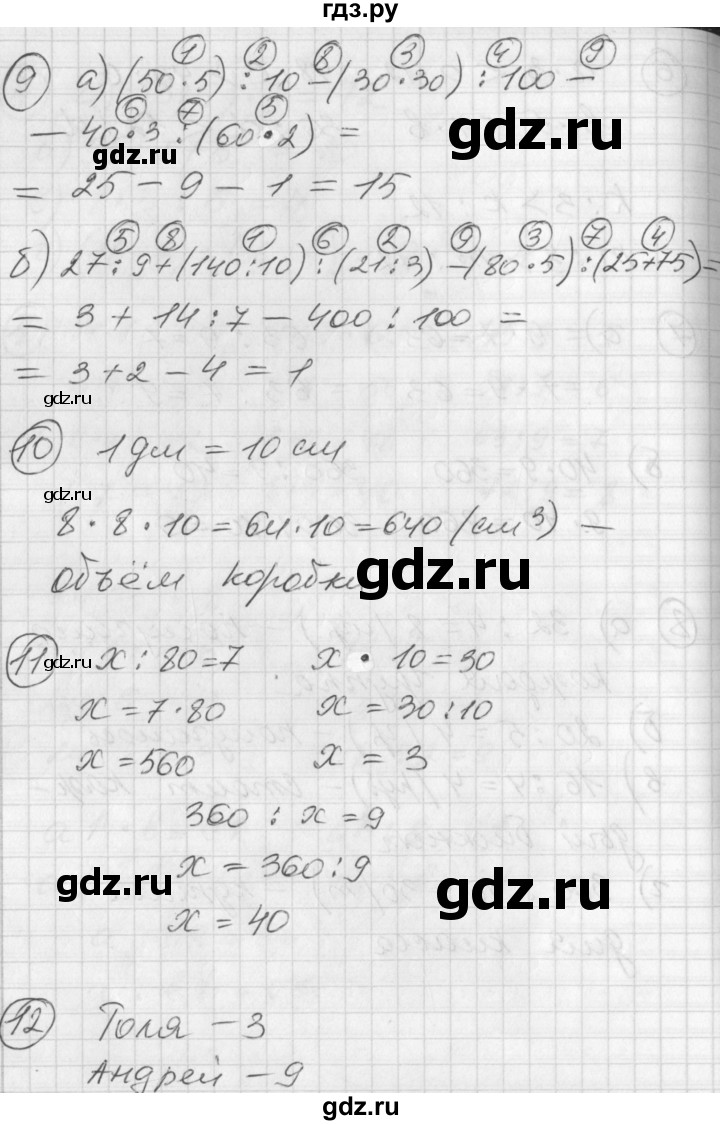 гдз.ру
9 а) (50·5) : 10 - (30·30) : 100 -
1 2 8 3 4 9
- 40·3 : (60·2) =
6 7 5
gdz.ru
gdz.ru
= 25 - 9 - 1 = 15
б) 27:9 + (140:10) : (21:3) - (80·5) : (25+75) =
5 8 1 6 2 9 3 7 4
= 3 + 14 : 7 - 400 : 100 =
gdz.ru
gdz.ru
= 3 + 2 - 4 = 1
gdz.ru
10 1 дм = 10 см
gdz.ru
8 · 8 · 10 = 64·10 = 640 (см³) —
объём коробки
gdz.ru
11 x : 80 = 7 x · 10 = 30
gdz.ru
x = 7·80 x = 30:10
x = 560 x = 3
360 : x = 9
x = 360:9
gdz.ru
gdz.ru
x = 40
12 Толя - 3
Андрей - 9
gdz.ru
gdz.ru